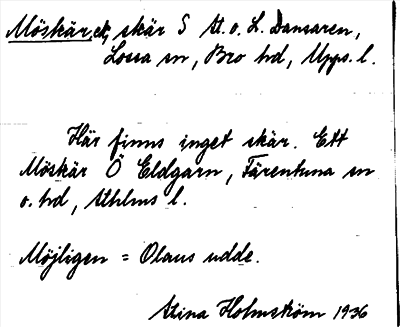 Möskär, et, skär S St. o. L. Dansaren,
Lossa sn, Bro hd, Upps. l.
Här finns inget skär. Ett
Möskär Ö Eldgarn, Färentuna sn
o. hd, Sthlms l.
Möjligen = Olaus udde.
Stina Holmström 1936